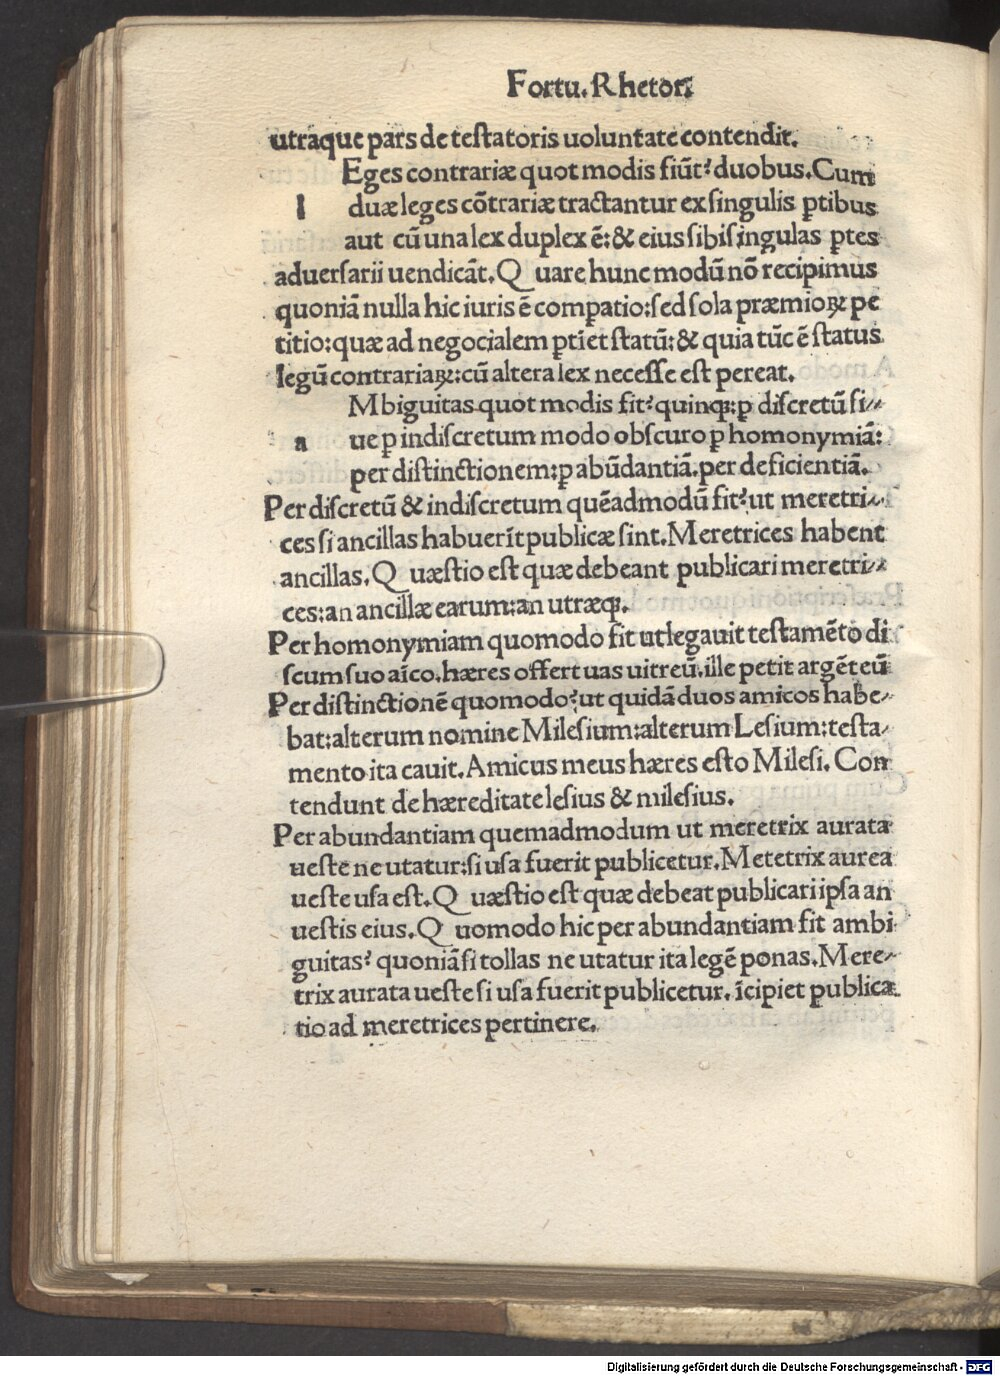 Fortu. Rhetor.
utraque pars de testatoris uoluntate contendit.
Eges contrariæ quot modis fiūt? duobus. Cum
l duæ leges cōtrariæ tractantur ex singulis ꝑtibus
aut cū una lex duplex ē: & eius sibi singulas ꝑtes
aduersarii uendicāt. Q uare hunc modū nō recipimus
quoniā nulla hic iuris ē compatio: sed sola præmioꝝ pe
titio: quæ ad negocialem ꝑtiet statū: & quia tūc ē status
legū contrariaꝝ: cū altera lex necesse est pereat.
Mbiguitas quot modis fit? quinqꝫ: ꝑ discretū si⸗
a ue ꝑ indiscretum modo obscuro ꝑ homonymiā:
per distinctionem: ꝑ abūdantiā. per deficientiā.
Per discretū & indiscretum quēadmodū fit? ut meretri⸗
ces si ancillas habuerīt publicæ sint. Meretrices habent
ancillas. Q uæstio est quæ debeant publicari meretri⸗
ces: an ancillæ earum: an utræqꝫ.
Per homonymiam quomodo fit ut legauit testamēto di
scum suo aīco. hæres offert uas uitreū. ille petit argēteū
Per distinctionē quomodo? ut quidā duos amicos habe⸗
bat: alterum nomine Milesium: alterum Lesium: testa⸗
mento ita cauit. Amicus meus hæres esto Milesi. Con
tendunt de hæreditate lesius & milesius.
Per abundantiam quemadmodum ut meretrix aurata
ueste ne utatur: si usa fuerit publicetur. Metetrix aurea
ueste usa est. Q uæstio est quæ debeat publicari ipsa an
uestis eius. Q uomodo hic per abundantiam fit ambi
guitas? quoniā si tollas ne utatur ita legē ponas. Mere⸗
trix aurata ueste si usa fuerit publicetur. īcipiet publica
tio ad meretrices pertinere.
Digitalisierung gefördert durch die Deutsche Forschungsgemeinschaft - DFG